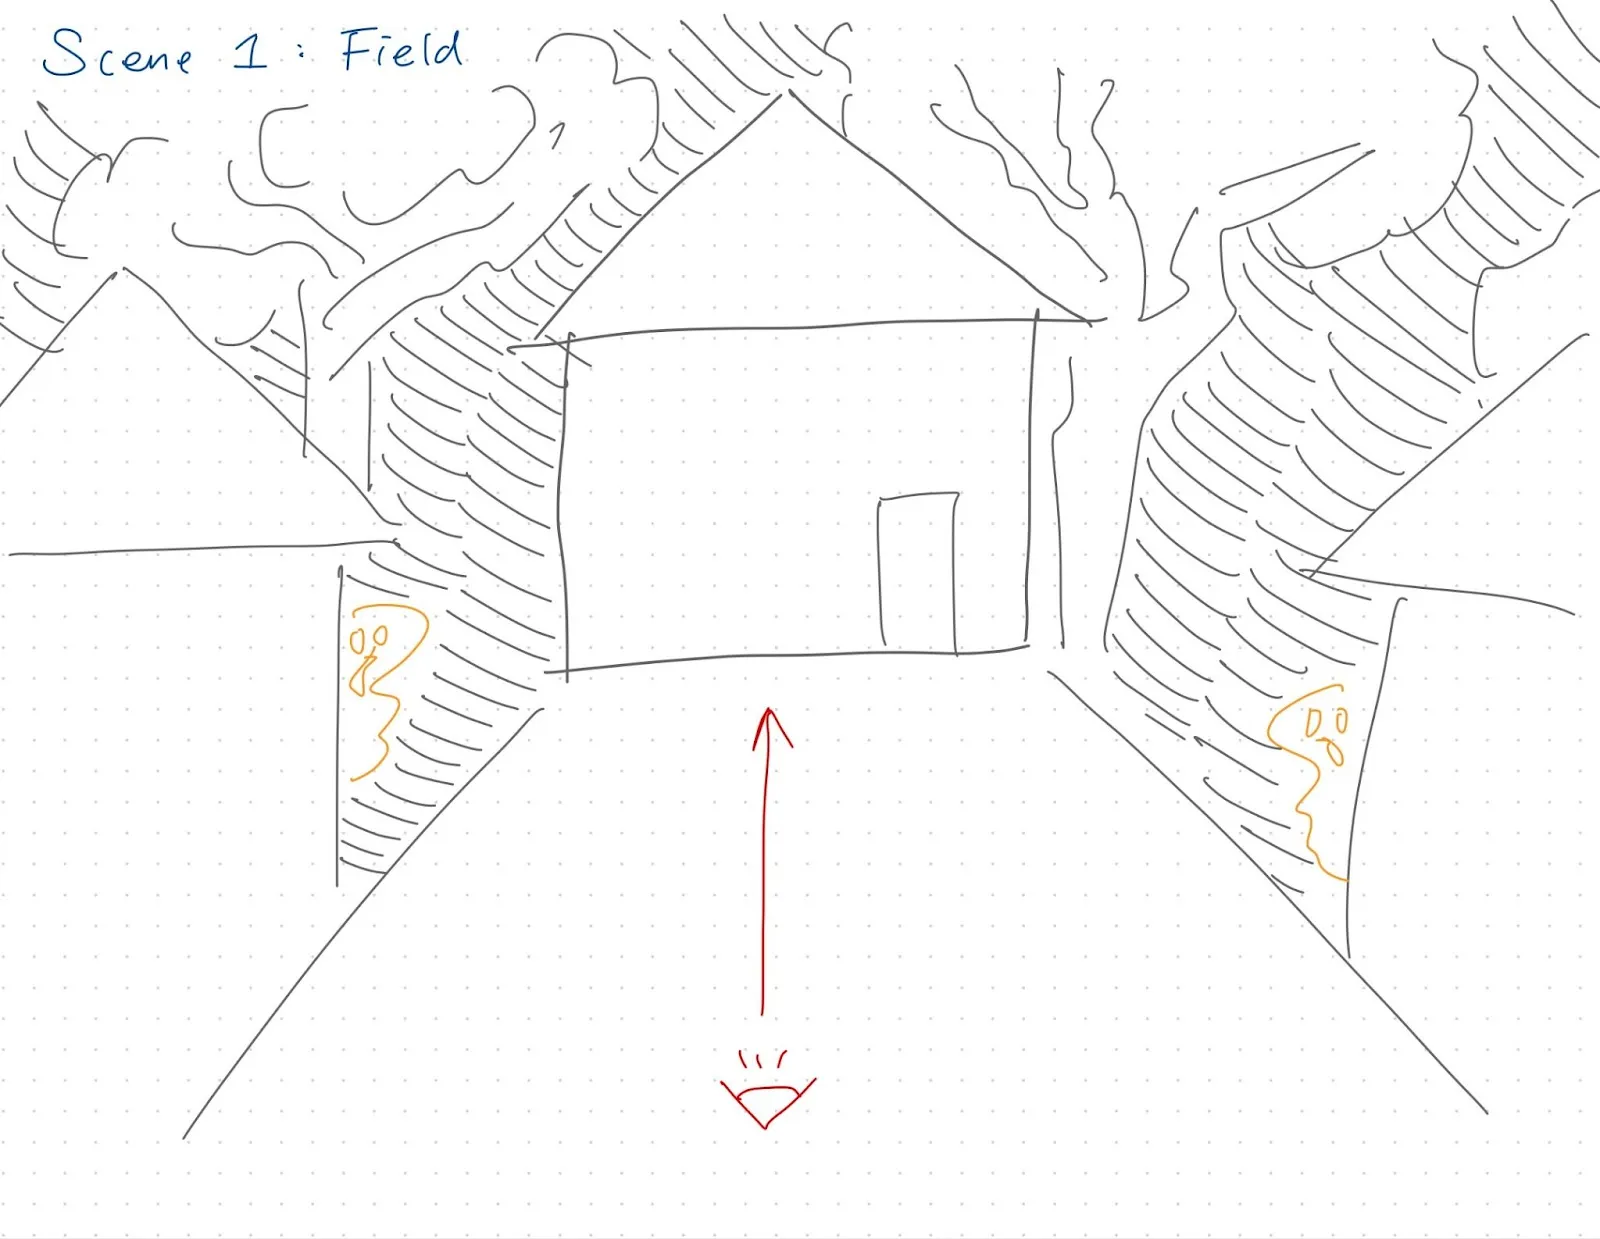 Scene 1 : Field